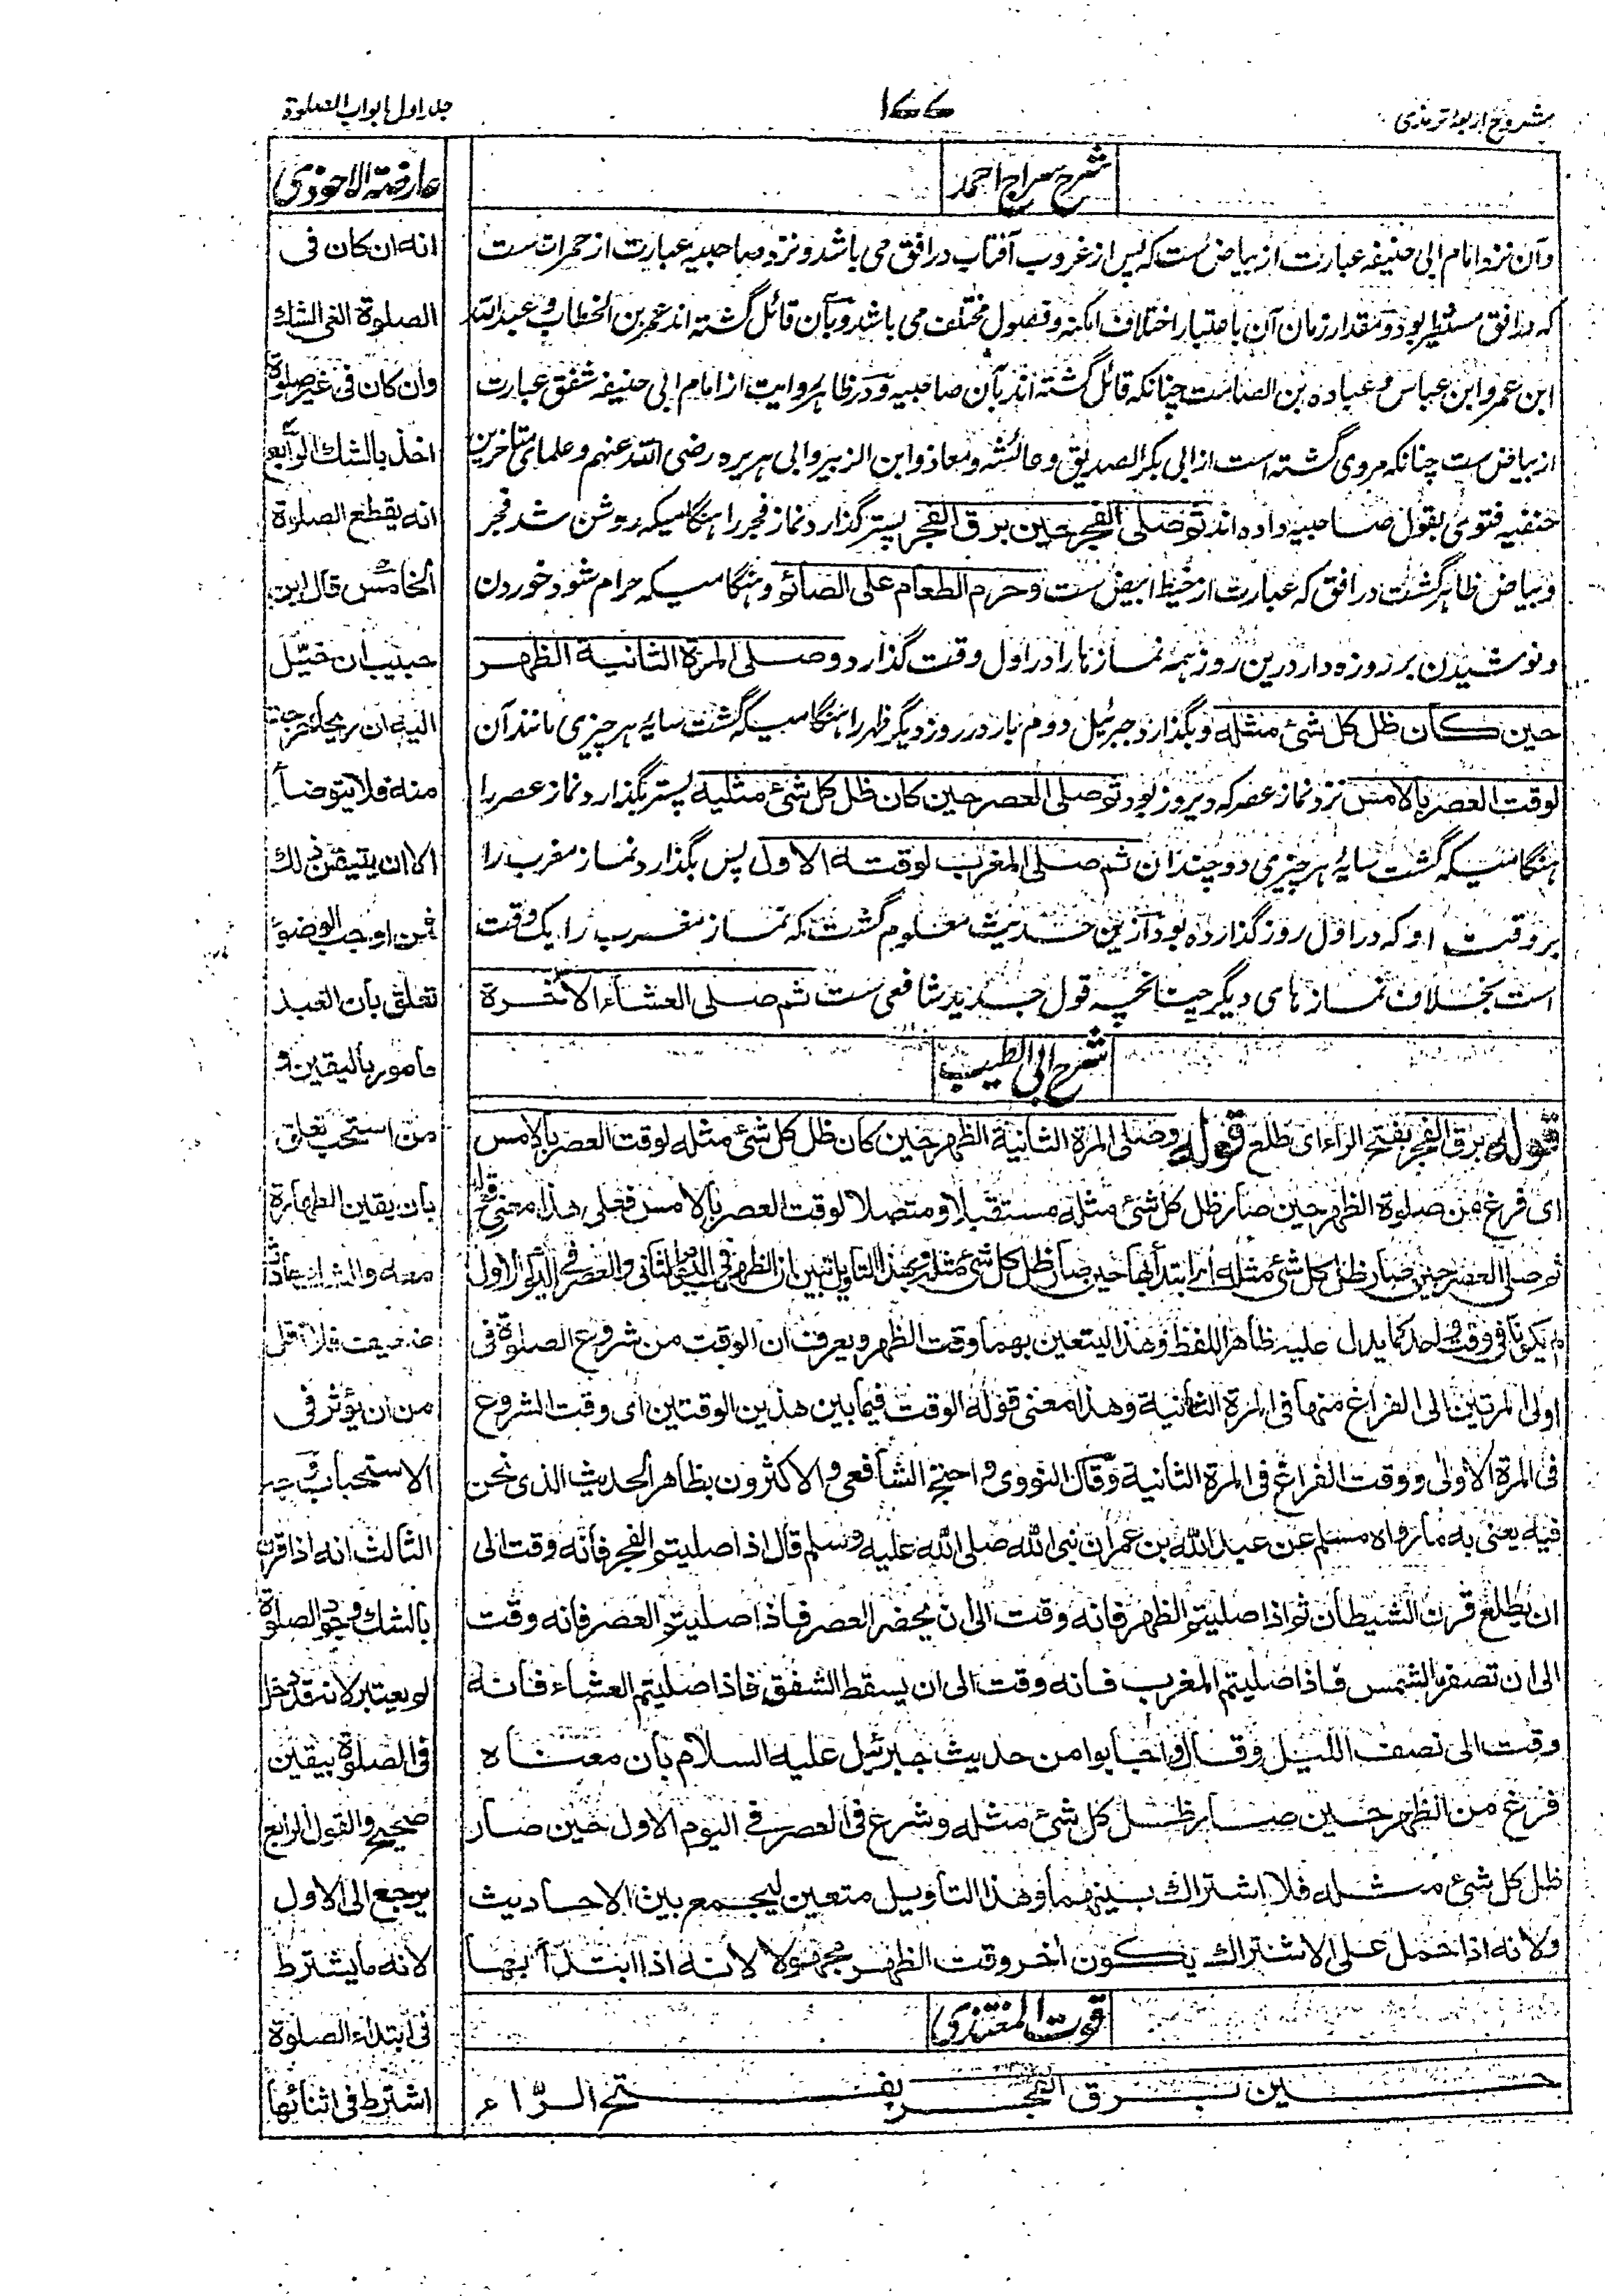 مشروح اربعہ ترمذی
۱۷۷
جلد اول ابواب الصلوة
شرح سراج احمد
وآن نزد امام ابی حنیفه عبارت از بیاض ست که پس از غروب آفتاب در افق می باشد ونزد صاحبیه عبارت از حمرات ست
که در افق مستطیر بود ومقدار زمان آن باعتبار اختلاف امکنه وفصول مختلف می باشد وبآن قائل گشته اند عمر بن الخطاب وعبدالله
ابن عمر وابن عباس وعباده بن الصامت چنانکه قائل گشته اند بآن صاحبیه ودر ظاهر روایت از امام ابی حنیفه شفق عبارت
از بیاض ست چنانکه مروی گشته است از ابی بکر الصدیق وعائشه ومعاذ وابن الزبیر وابی هریره رضی الله عنهم وعلمای متاخرین
حنفیه فتوی بقول صاحبیه داده اند ثم صلی الفجر حین برق الفجر پستر گذارد نماز فجر را هنگامیکه روشن شد فجر
وبیاض ظاهر گشت در افق که عبارت از خیط ابیض ست وحرم الطعام علی الصائم وهنگامیکه حرام شود خوردن
ونوشیدن بر روزه دار درین روز همه نمازها را در اول وقت گذارد وصلی المرة الثانیة الظهر
حین کان ظل کل شئ مثله وبگذارد جبرئیل دوم بار در روز دیگر ظهر را هنگامیکه گشت سایۀ هر چیزی مانند آن
لوقت العصر بالامس نزد نماز عصر که دیروز بود ثم صلی العصر حین کان ظل کل شئ مثلیه پستر بگذارد نماز عصر را
هنگامیکه گشت سایۀ هر چیزی دو چند آن ثم صلی المغرب لوقته الاول پس بگذارد نماز مغرب را
بر وقت او که در اول روز گذارده بود ازین حدیث معلوم گشت که نماز مغرب را یک وقت
است بخلاف نماز های دیگر چنانچه قول جدید شافعی ست ثم صلی العشاء الاخرة
شرح ابی الطیب
قوله برق الفجر بفتح الراء ای طلع قوله وصلی المرة الثانیة الظهر حین کان ظل کل شئ مثله لوقت العصر بالامس
ای فرغ من صلوة الظهر حین صار ظل کل شئ مثله مستقبلا ومتصلا لوقت العصر بالامس فعلی هذا معنی قوله
ثم صلی العصر حین صار ظل کل شئ مثله ای ابتدأ بها حین صار ظل کل شئ مثله وبهذا التاویل تبین ان الظهر فی الیوم الثانی والعصر فی الیوم الاول
لم یکونا فی وقت واحد کما یدل علیه ظاهر اللفظ وهذا لیتعین بهما وقت الظهر ویعرف ان الوقت من شروع الصلوة فی
اولی المرتین الی الفراغ منها فی المرة الثانیة وهذا معنی قوله الوقت فیما بین هذین الوقتین ای وقت الشروع
فی المرة الاولی ووقت الفراغ فی المرة الثانیة وقال النووی واحتج الشافعی والاکثرون بظاهر الحدیث الذی نحن
فیه یعنی به ما رواه مسلم عن عبد الله بن عمر ان نبی الله صلی الله علیه وسلم قال اذا صلیتم الفجر فانه وقت الی
ان یطلع قرن الشیطان ثم اذا صلیتم الظهر فانه وقت الی ان یحضر العصر فاذا صلیتم العصر فانه وقت
الی ان تصفر الشمس فاذا صلیتم المغرب فانه وقت الی ان یسقط الشفق فاذا صلیتم العشاء فانه
وقت الی نصف اللیل وقال واجابوا من حدیث جبرئیل علیه السلام بان معناه
فرغ من الظهر حین صار ظل کل شئ مثله وشرع فی العصر فی الیوم الاول حین صار
ظل کل شئ مثله فلا اشتراك بینهما وهذا التاویل متعین لیجمع بین الاحادیث
ولانه اذا حمل علی الاشتراك یکون اخر وقت الظهر مجهولا لانه اذا ابتدأ بها
قوت المغتذی
حین برق الفجر بفتح الراء
عارضة الاحوذی
انه ان كان فی
الصلوة الغی الشك
وان كان فی غیر صلوة
اخذ بالشك الرابع
انه یقطع الصلوة
الخامس قال ابن
حبیب ان خیّل
الیه ان ریحا خرجت
منه فلا یتوضأ
الا ان یتیقن ذلك
فمن اوجب الوضوء
تعلق بان العبد
مامور بالیقین و
من استحب تعلق
بان یقین الطهارة
معه والشك
من ان یؤثر فی
الاستحباب وجه
الثالث انه اذا قرن
بالشك وجود الصلوة
لم یعتبر لانه قد دخل
فی الصلوة بیقین
صحیح والقول الرابع
یرجع الی الاول
لانه ما یشترط
فی ابتداء الصلوة
اشترط فی اثنائها